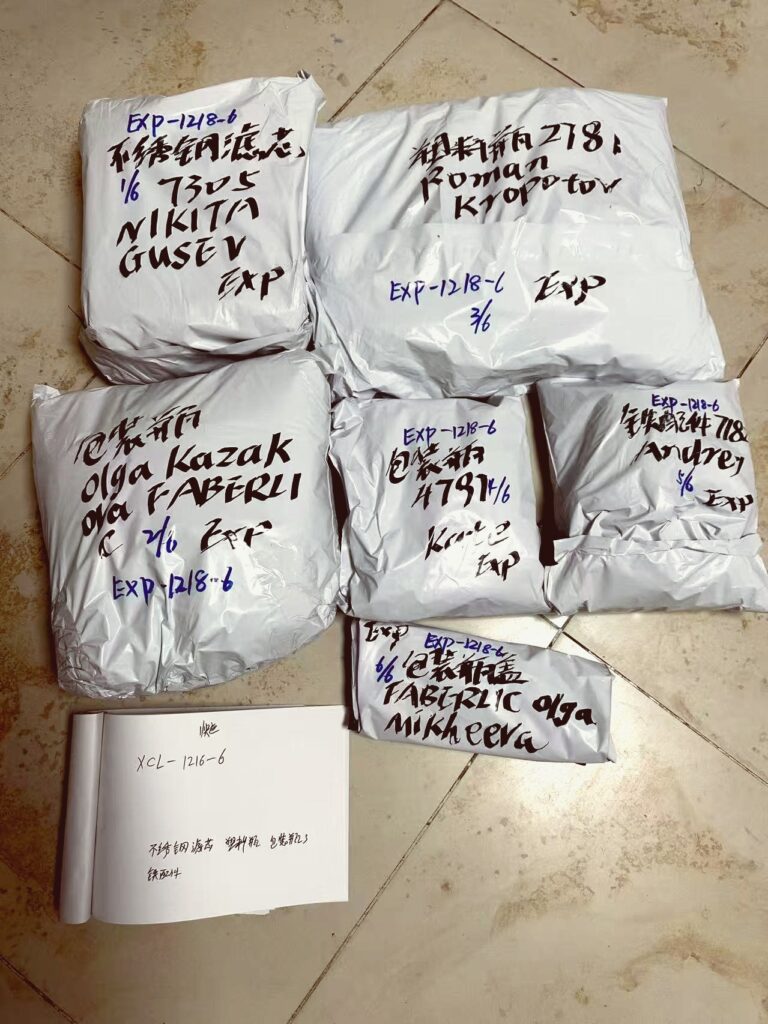 EXP-1218-6
不绣钢滤芯
1/6 7305
NIKITA
GUSEV
EXP
塑料瓶 278
Roman
Kropotov
EXP-1218-6 EXP
3/6
包装瓶
olga Kazak
ova FABERLI
C 2/6 EXP
EXP-1218-6
EXP-1218-6
包装瓶
4791 4/6
EXP
EXP-1218-6
铁配件 718
Andrey
5/6
EXP
EXP
EXP-1218-6
6/6 包装瓶盖
FABERLIC olga
Mikheeva
XCL-1216-6
不绣钢滤芯 塑料瓶 包装瓶
铁配件